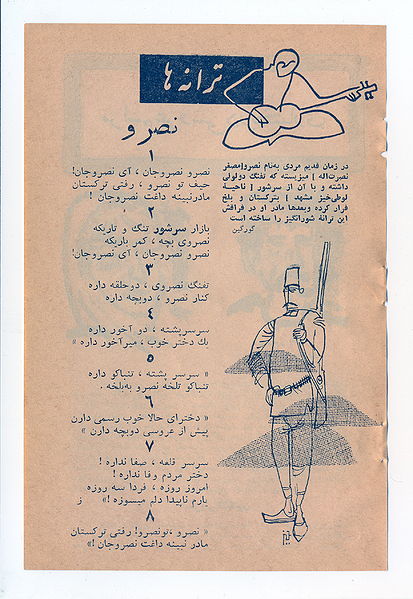 ترانه ها
نصرو
در زمان قدیم مردی به‌نام نصرو[مصغر
نصرت‌اله ] میزیسته که تفنگ دولولی
داشته و با آن از سرشور [ ناحیهٔ
لوطی‌خیز مشهد ] بترکستان و بلخ
فرار کرده وبعدها مادر او در فراقش
این ترانهٔ شورانگیز را ساخته است
گورگین
۱
نصرو نصروجان ، آی نصروجان!
حیف تو نصرو ، رفتی ترکستان
مادرنبینه داغت نصروجان !
۲
بازار سرشور تنگ و تاریکه
نصروی بچه ، کمر باریکه
نصرو نصروجان ، آی نصروجان!
۳
تفنگ نصروی ، دوحلقه داره
کنار نصرو ، دوبچه داره
۴
سرسرپشته ، دو آخور داره
یك دختر خوب ، میرآخور داره »
۵
« سرسر پشته ، تنباکو داره
تنباکو تلخه نصرو به‌بلخه .
۶
« دخترای حالا خوب رسمی دارن
پیش از عروسی دوبچه دارن »
۷
سرسر قلعه ، صفا نداره !
دختر مردم وفا نداره !
امروز روزه ، فردا سه روزه
یارم ناپیدا دلم میسوزه »! ز
۸
« نصرو ،تونصرو! رفتی ترکستان
مادر نبینه داغت نصروجان !»